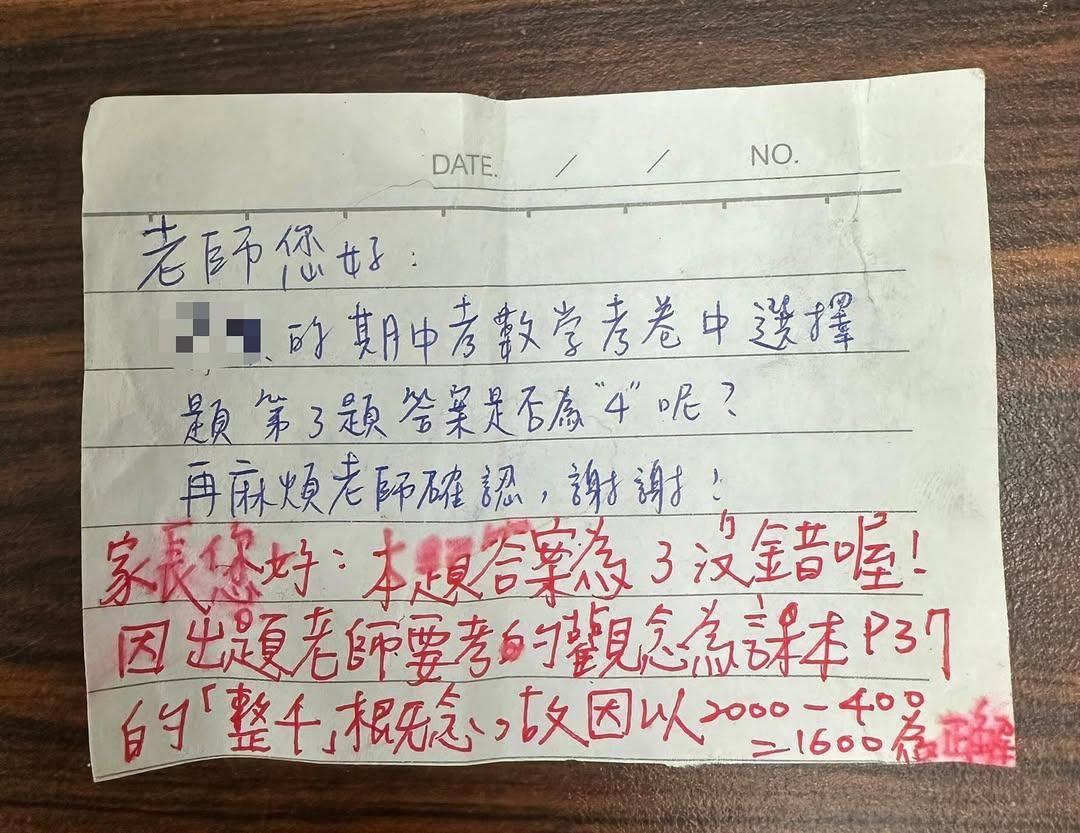 DATE. / / NO.
老師您好:
的期中考數学考卷中選擇
題第3題答案是否為"4"呢?
再麻煩老師確認,謝謝!
家長您好:本題答案為3沒錯喔!
因出題老師要考的觀念為課本P37
的「整千」概念,故因以2000-400
=1600為正解